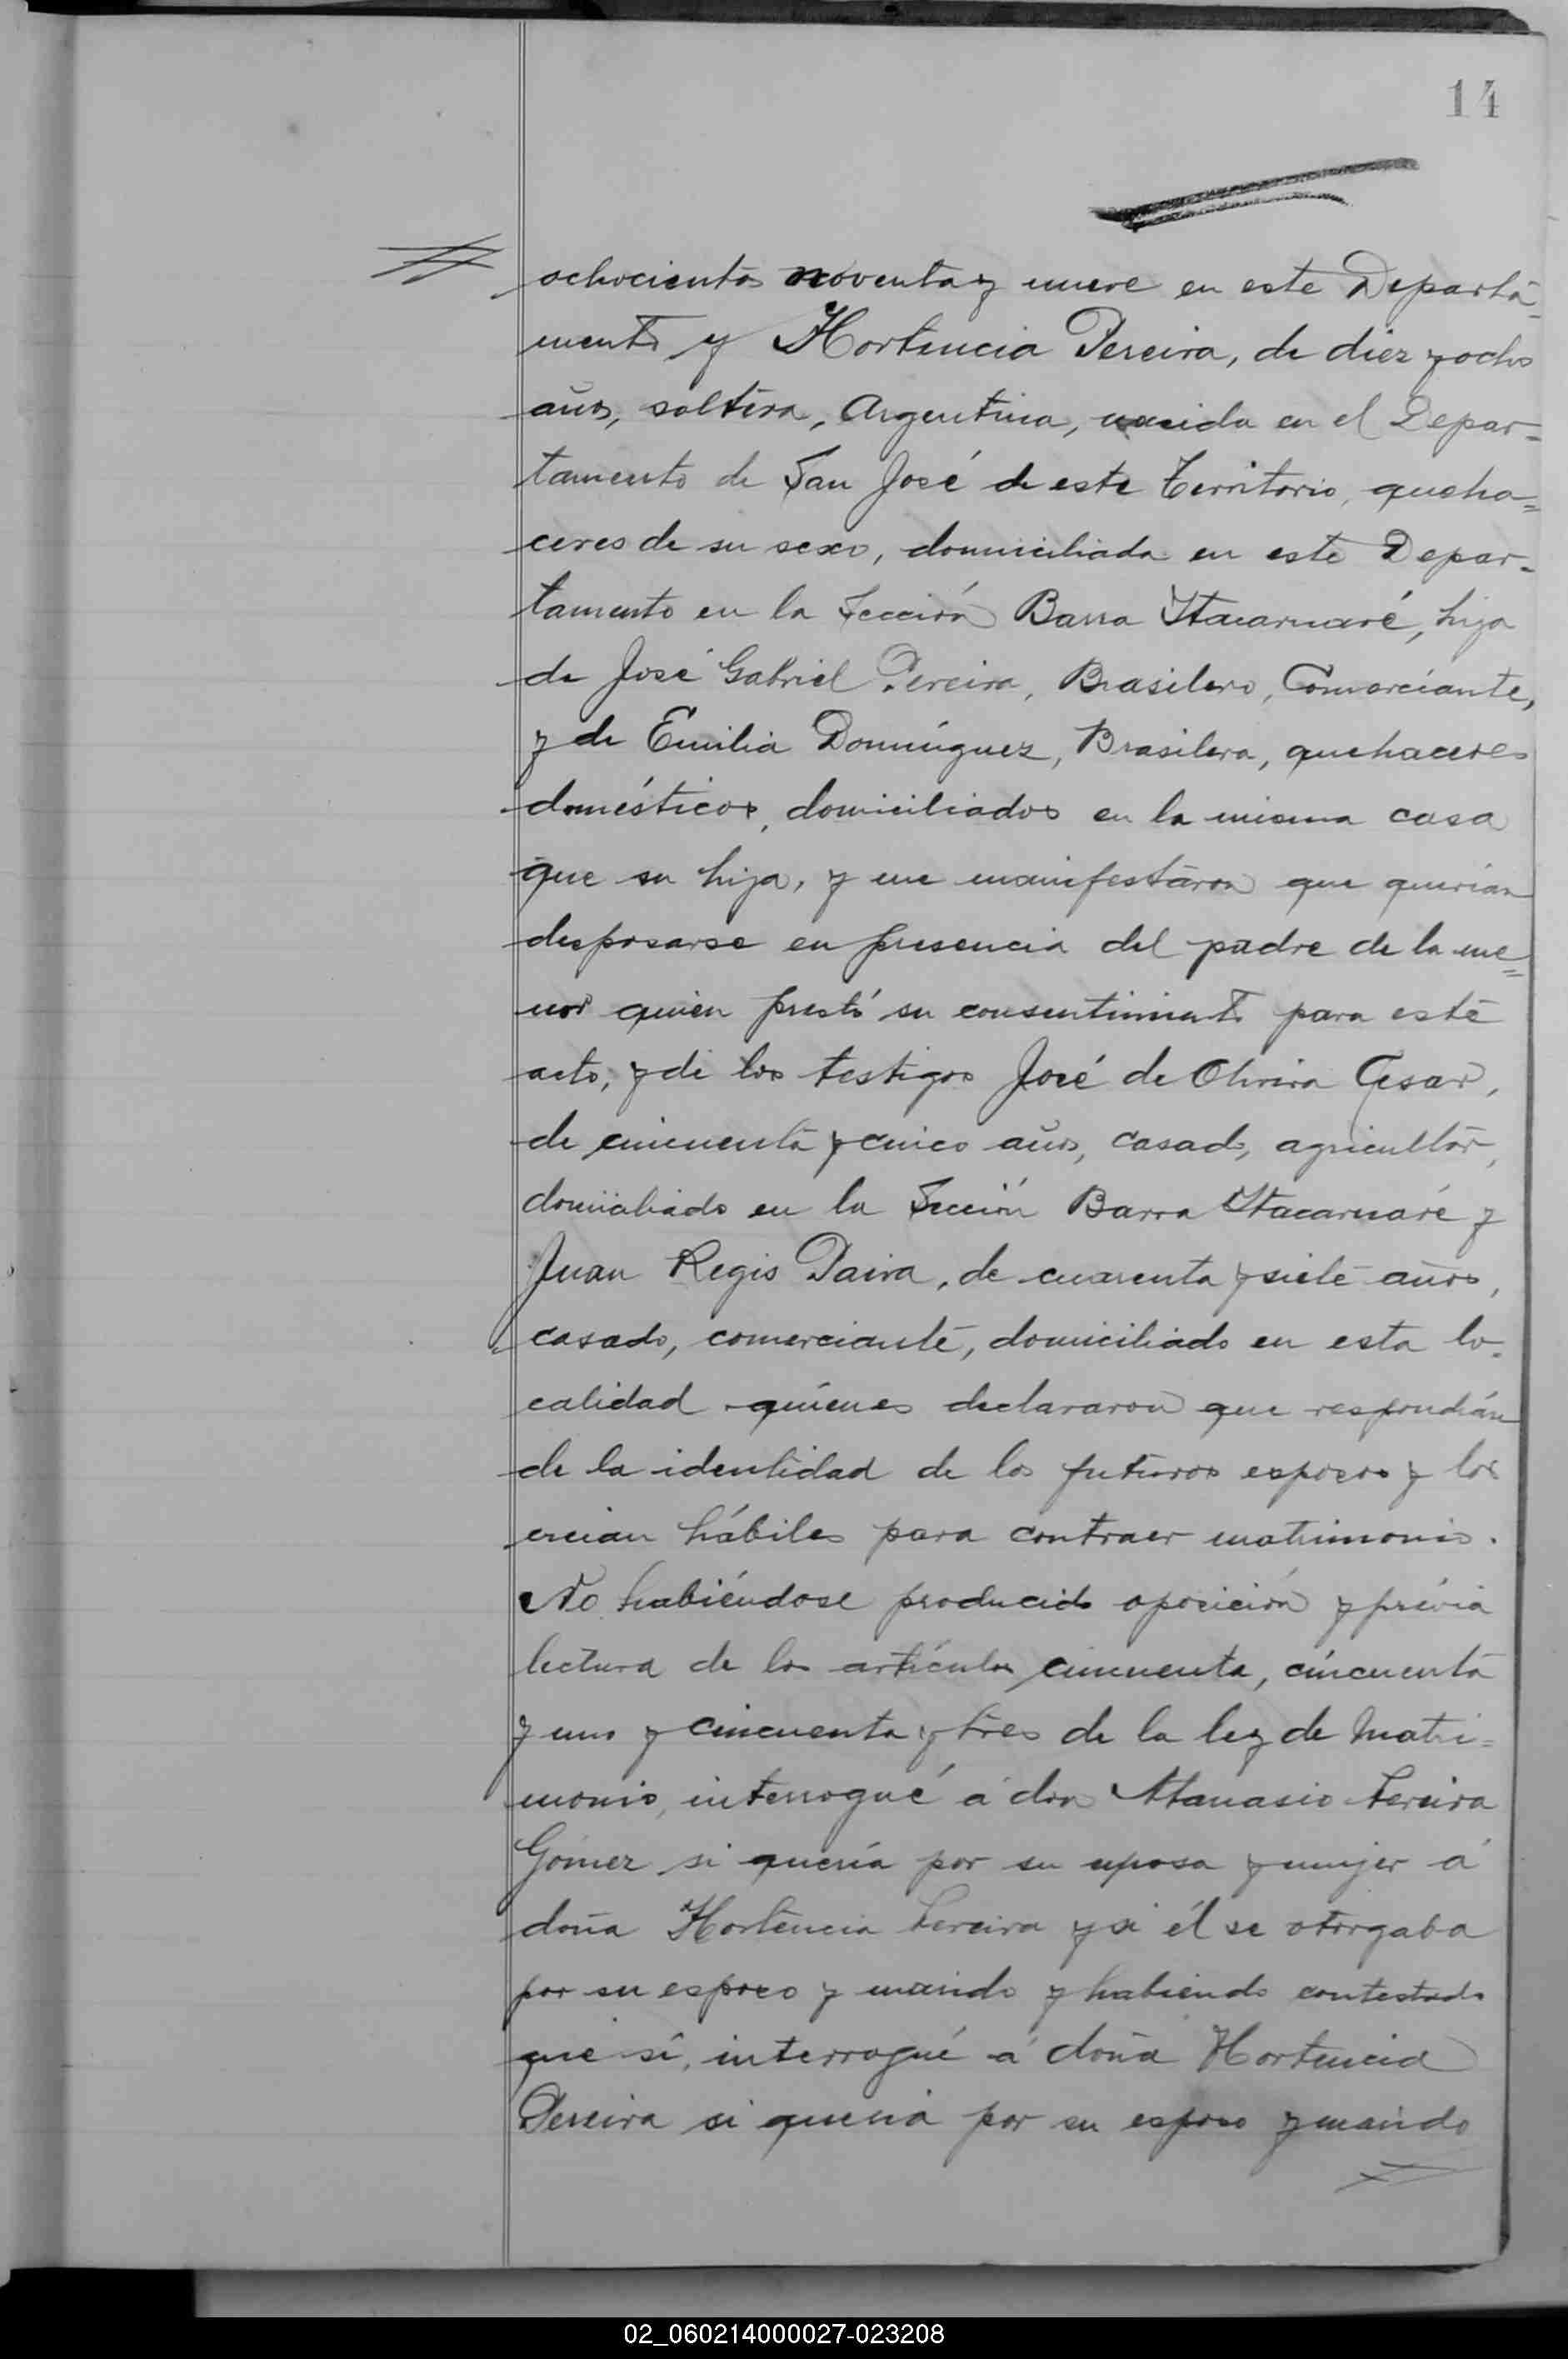 14
ochocientos noventa y nueve en este Departa=
mento y Hortencia Pereira, de diez y ocho
años, soltera, Argentina, nacida en el Depar=
tamento de San José de este Territorio, queha=
ceres de su sexo, domiciliada en este Depar=
tamento en la Sección Barra Itacaruaré, hija
de José Gabriel Pereira, Brasilero, Comerciante,
y de Emilia Domínguez, Brasilera, quehaceres
domésticos, domiciliados en la misma casa
que su hija, y me manifestaron que querían
desposarse en presencia del padre de la me=
nor quien prestó su consentimiento para este
acto, y de los testigos José de Olivira Cesar,
de cincuenta y cinco años, casado, agricultor,
domiciliado en la Sección Barra Itacaruaré y
Juan Regis Paiva, de cuarenta y siete años,
casado, comerciante, domiciliado en esta lo=
calidad quienes declararon que respondían
de la identidad de los futuros esposos y los
creian hábiles para contraer matrimonio.
No habiéndose producido oposición y prévia
lectura de los artículos cincuenta, cincuenta
y uno y cincuenta y tres de la ley de Matri=
monio, interrogué á don Atanasio Pereira
Gómez si quería por su esposa y mujer á
doña Hortencia Pereira y si él se otorgaba
por su esposo y marido y habiendo contestado
que sí, interrogué á doña Hortencia
Pereira si queria por su esposo y marido
02_060214000027-023208